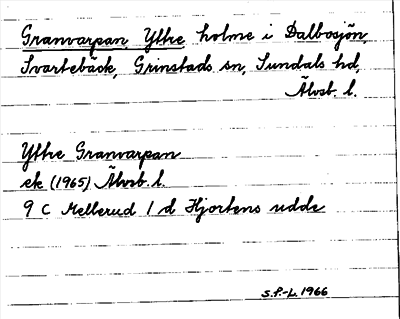 Granvarpan, Yttre holme i Dalbosjön,
Svartebäck, Grinstads sn, Sundals hd,
Älvsb. l.
Yttre Granvarpan
ek (1965) Älvsb. l.
9 C Mellerud 1 d Hjortens udde
S.F.-L. 1966